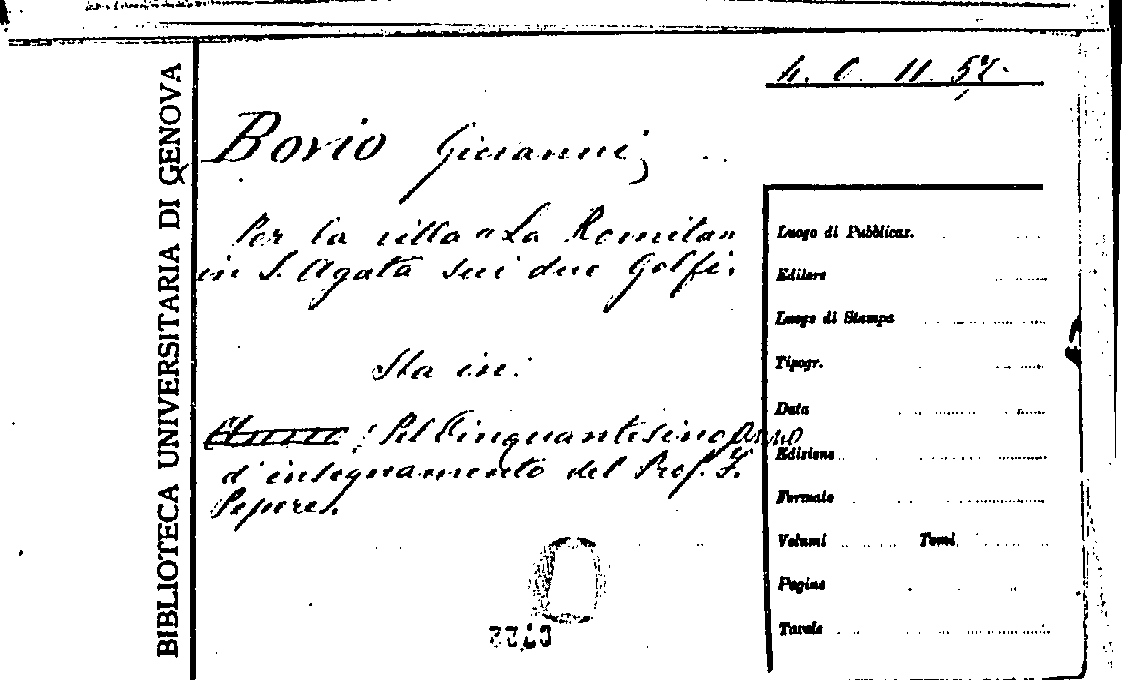 BIBLIOTECA UNIVERSITARIA DI GENOVA
4. C. 11. 57.
Bovio Giovanni,
Per la villa "La Romita"
in S. Agata sui due Golfi.
Sta in:
Pel Cinquantesimo anno
d'insegnamento del Prof. F.
Pepere.
Luogo di Pubblicaz.
Editore
Luogo di Stampa
Tipogr.
Data
Edizione
Formato
Volumi Tomi
Pagine
Tavole